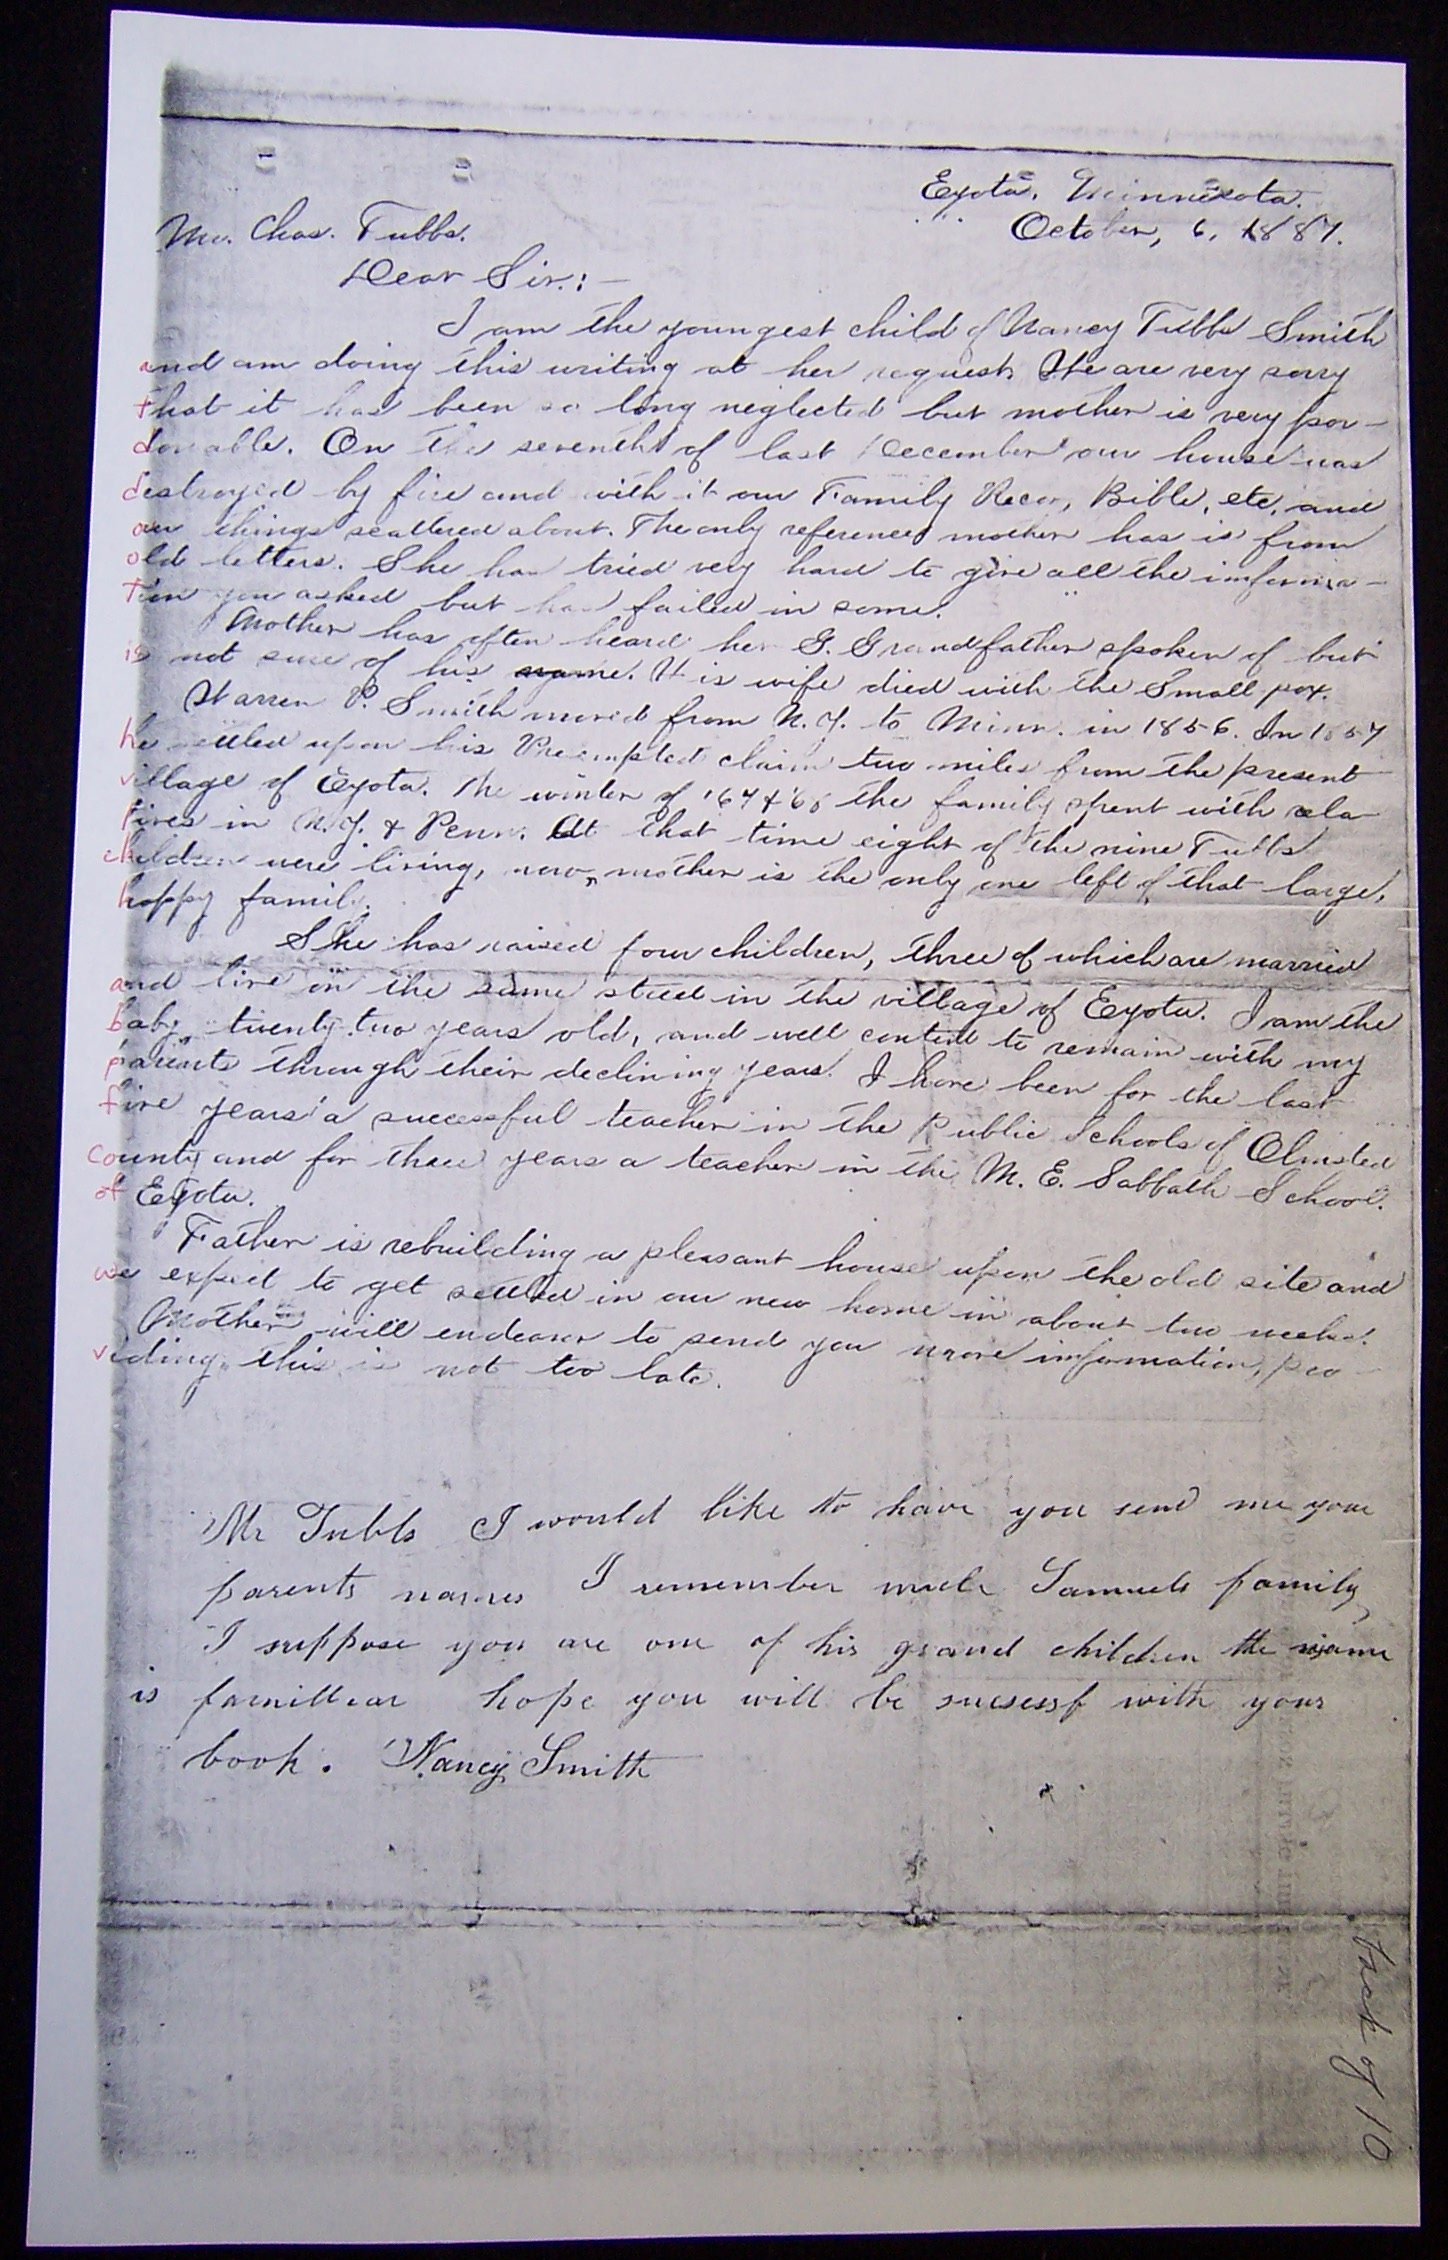 Eyota, Minnesota.
October, 6, 1887.
Mr. Chas. Tubbs.
Dear Sir.:—
I am the youngest child of Nancy Tubbs Smith
and am doing this writing at her request. We are very sorry
that it has been so long neglected but mother is very par-
donable. On the seventh of last December our house was
destroyed by fire and with it our Family Recor, Bible, etc, and
our things scattered about. The only reference mother has is from
old letters. She has tried very hard to give all the informa-
tion you asked but has failed in some.
Mother has often heard her G. Grandfather spoken of but
is not sure of his name. His wife died with the Small pox.
Warren P. Smith moved from N.Y. to Minn. in 1856. In 1857
he settled upon his Preempted claim two miles from the present
village of Eyota. The winter of '67 & '68 the family spent with rela-
tives in N.Y. & Penn. At that time eight of the nine Tubbs
children were living, now, mother is the only one left of that large,
happy family.
She has raised four children, three of which are married
and live on the same street in the village of Eyota. I am the
baby, twenty-two years old, and well content to remain with my
parents through their declining years. I have been for the last
five years a successful teacher in the Public Schools of Olmsted
County and for three years a teacher in the M. E. Sabbath School
of Eyota.
Father is rebuilding a pleasant house upon the old site and
we expect to get settled in our new home in about two weeks.
Mother will endeavor to send you more information, pro-
viding this is not too late.
Mr Tubbs I would like to have you send me your
parents names I remember uncle Samuels family
I suppose you are one of his grand children the name
is familiear hope you will be sucsessf with your
book. Nancy Smith
back of 10